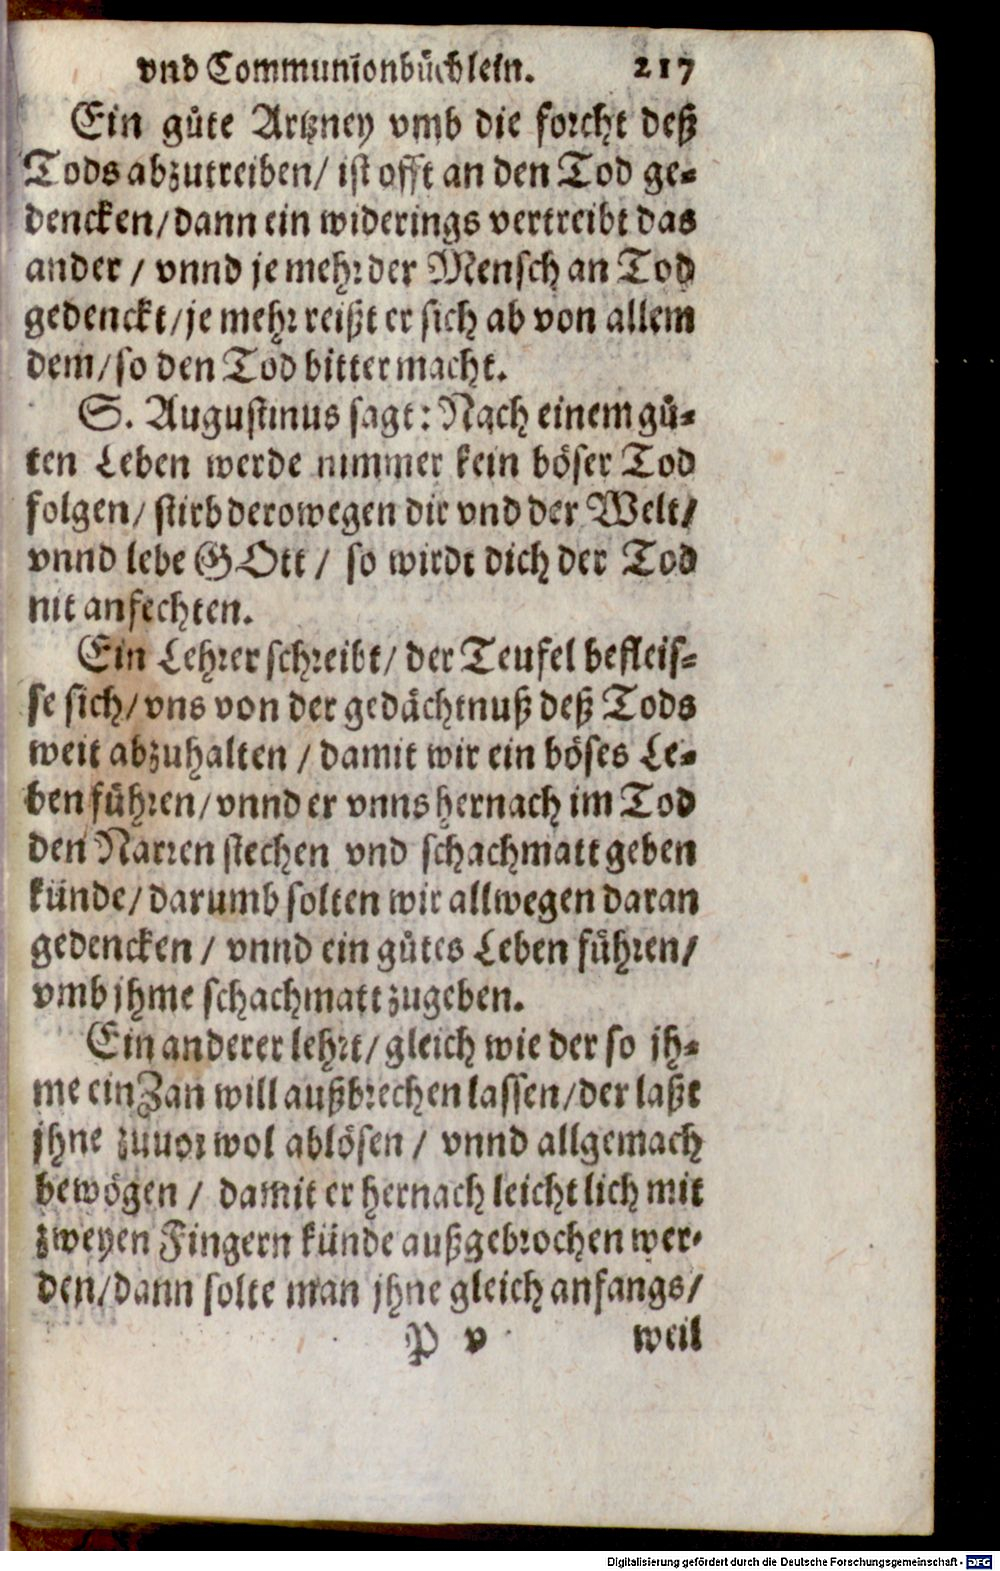 vnd Communionbüchlein. 217
Ein gůte Artzney vmb die forcht deß
Tods abzutreiben/ ist offt an den Tod ge-
dencken/dann ein widerings vertreibt das
ander / vnnd je mehr der Mensch an Tod
gedenckt/je mehr reißt er sich ab von allem
dem/so den Tod bitter macht.
S. Augustinus sagt: Nach einem gů-
ten Leben werde nimmer kein böser Tod
folgen/ stirb derowegen dir vnd der Welt/
vnnd lebe GOtt / so wirdt dich der Tod
nit anfechten.
Ein Lehrer schreibt/ der Teufel befleis-
se sich/ vns von der gedächtnuß deß Tods
weit abzuhalten / damit wir ein böses Le-
ben führen/ vnnd er vnns hernach im Tod
den Narren stechen vnd schachmatt geben
künde/ darumb solten wir allwegen daran
gedencken / vnnd ein gůtes Leben führen/
vmb jhme schachmatt zugeben.
Ein anderer lehrt/ gleich wie der so jh-
me ein Zan will außbrechen lassen/der laßt
jhne zuuor wol ablösen / vnnd allgemach
bewögen / damit er hernach leichtlich mit
zweyen Fingern künde außgebrochen wer-
den/dann solte man jhne gleich anfangs/
P v weil
Digitalisierung gefördert durch die Deutsche Forschungsgemeinschaft - DFG